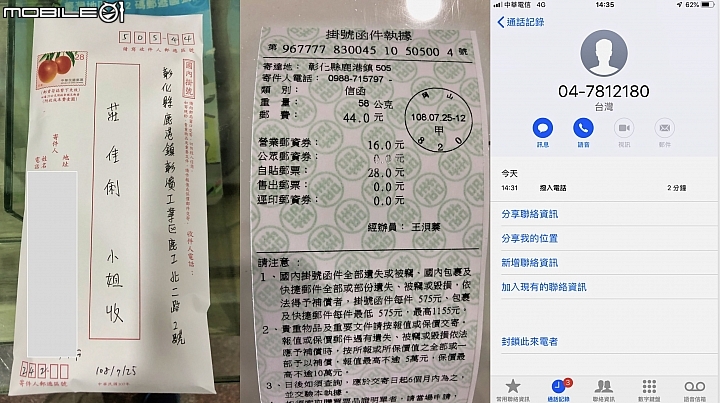 MOBILE01
50544
請寫收件人郵遞區號
28
國內掛號
彰化縣鹿港鎮彰濱工業區鹿工北二路2號
收件人電話：
莊佳俐 小姐收
寄件人
地址
姓名
電話
108/7/25
掛號函件執據
第 967777 830045 10 50500 4 號
寄達地： 彰化縣鹿港鎮 505
寄件人電話： 0988-715797 -
類 別： 信函
重 量： 58 公克
郵 費： 44.0 元
108.07.25-12
甲
營業郵資券： 16.0 元
公眾郵資券： 元
自貼郵票： 28.0 元
售出郵票： 0.0 元
逕印郵資券： 0.0 元
經辦員：
請注意：
1、國內掛號函件全部遺失或被竊，國內包裹及
快捷郵件全部或部份遺失、被竊或毀損，依
法得予補償者，掛號函件每件 575元，包裹
及快捷郵件每件最低 575元，最高1155元。
2、貴重物品及重要文件請按報值或保價交寄，
報值或保價郵件遇有遺失、被竊或毀損依法
應予補償時，按所報或所保價值之全部或一
部予以補償，報值最高不逾 5萬元，保價最
高不逾10萬元。
3、日後如須查詢，應於交寄日起6個月內為之，
並交驗本執據。
中華電信 4G
14:35
62%
通話記錄
04-7812180
台灣
訊息
語音
視訊
郵件
今天
14:31 撥入電話 2 分鐘
分享聯絡資訊
分享我的位置
新增聯絡資訊
加入現有的聯絡資訊
封鎖此來電者
3
常用聯絡資訊
通話記錄
聯絡資訊
數字鍵盤
語音信箱